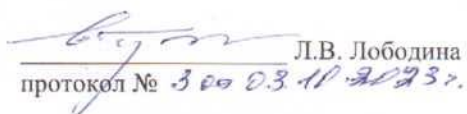 Л.В. Лободина
протокол № 3 от 03.10.2023г.